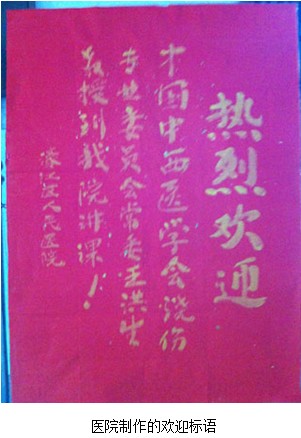 热烈欢迎
中国中西医学会烧伤
专业委员会常委王洪生
教授到我院讲课！
江区人民医院
医院制作的欢迎标语